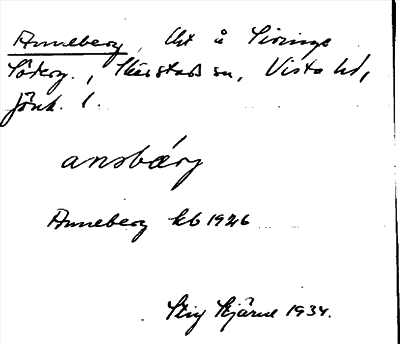 Anneberg, Ut å Siringe
Söderg., Skärstads sn, Vista hd,
Jönk. l.
ansbærg
Anneberg kb 1926
Stig Stjärne 1934.